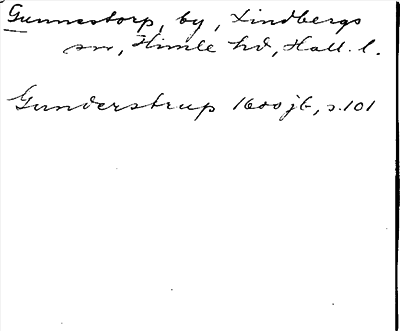 Gunnestorp, by, Lindbergs
sn, Himle hd, Hall. l.
Gunderstrup 1600 jb, s. 101